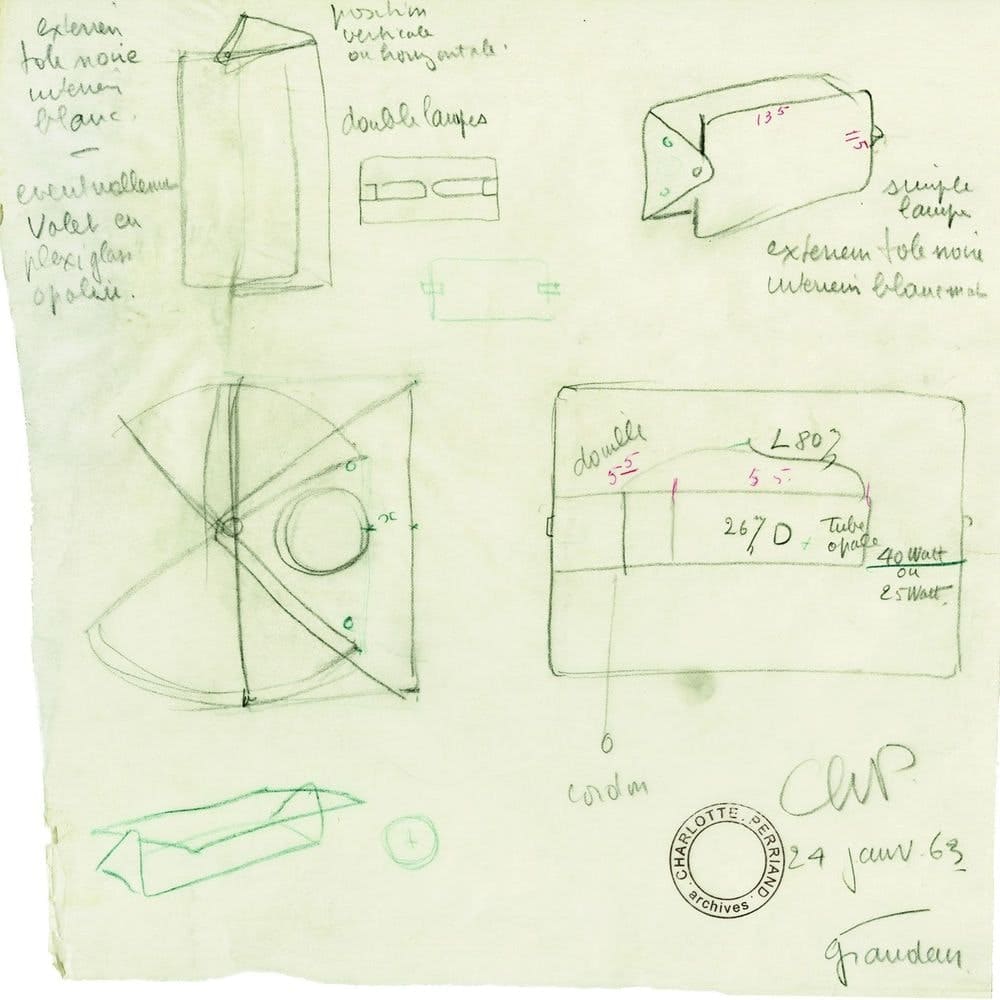 exterieur
tole noire
interieur
blanc.
—
eventuellement
Volet en
plexiglass
opalin.
position
verticale
ou horizontale.
double lampes
135
115
simple
lampe
exterieur tole noire
interieur blanc mat
x
douille
55
L 80
55
26 D
Tube
opale
40 Watt
ou
25 Watt.
cordon
ChP.
24 janv. 63
CHARLOTTE PERRIAND
archives